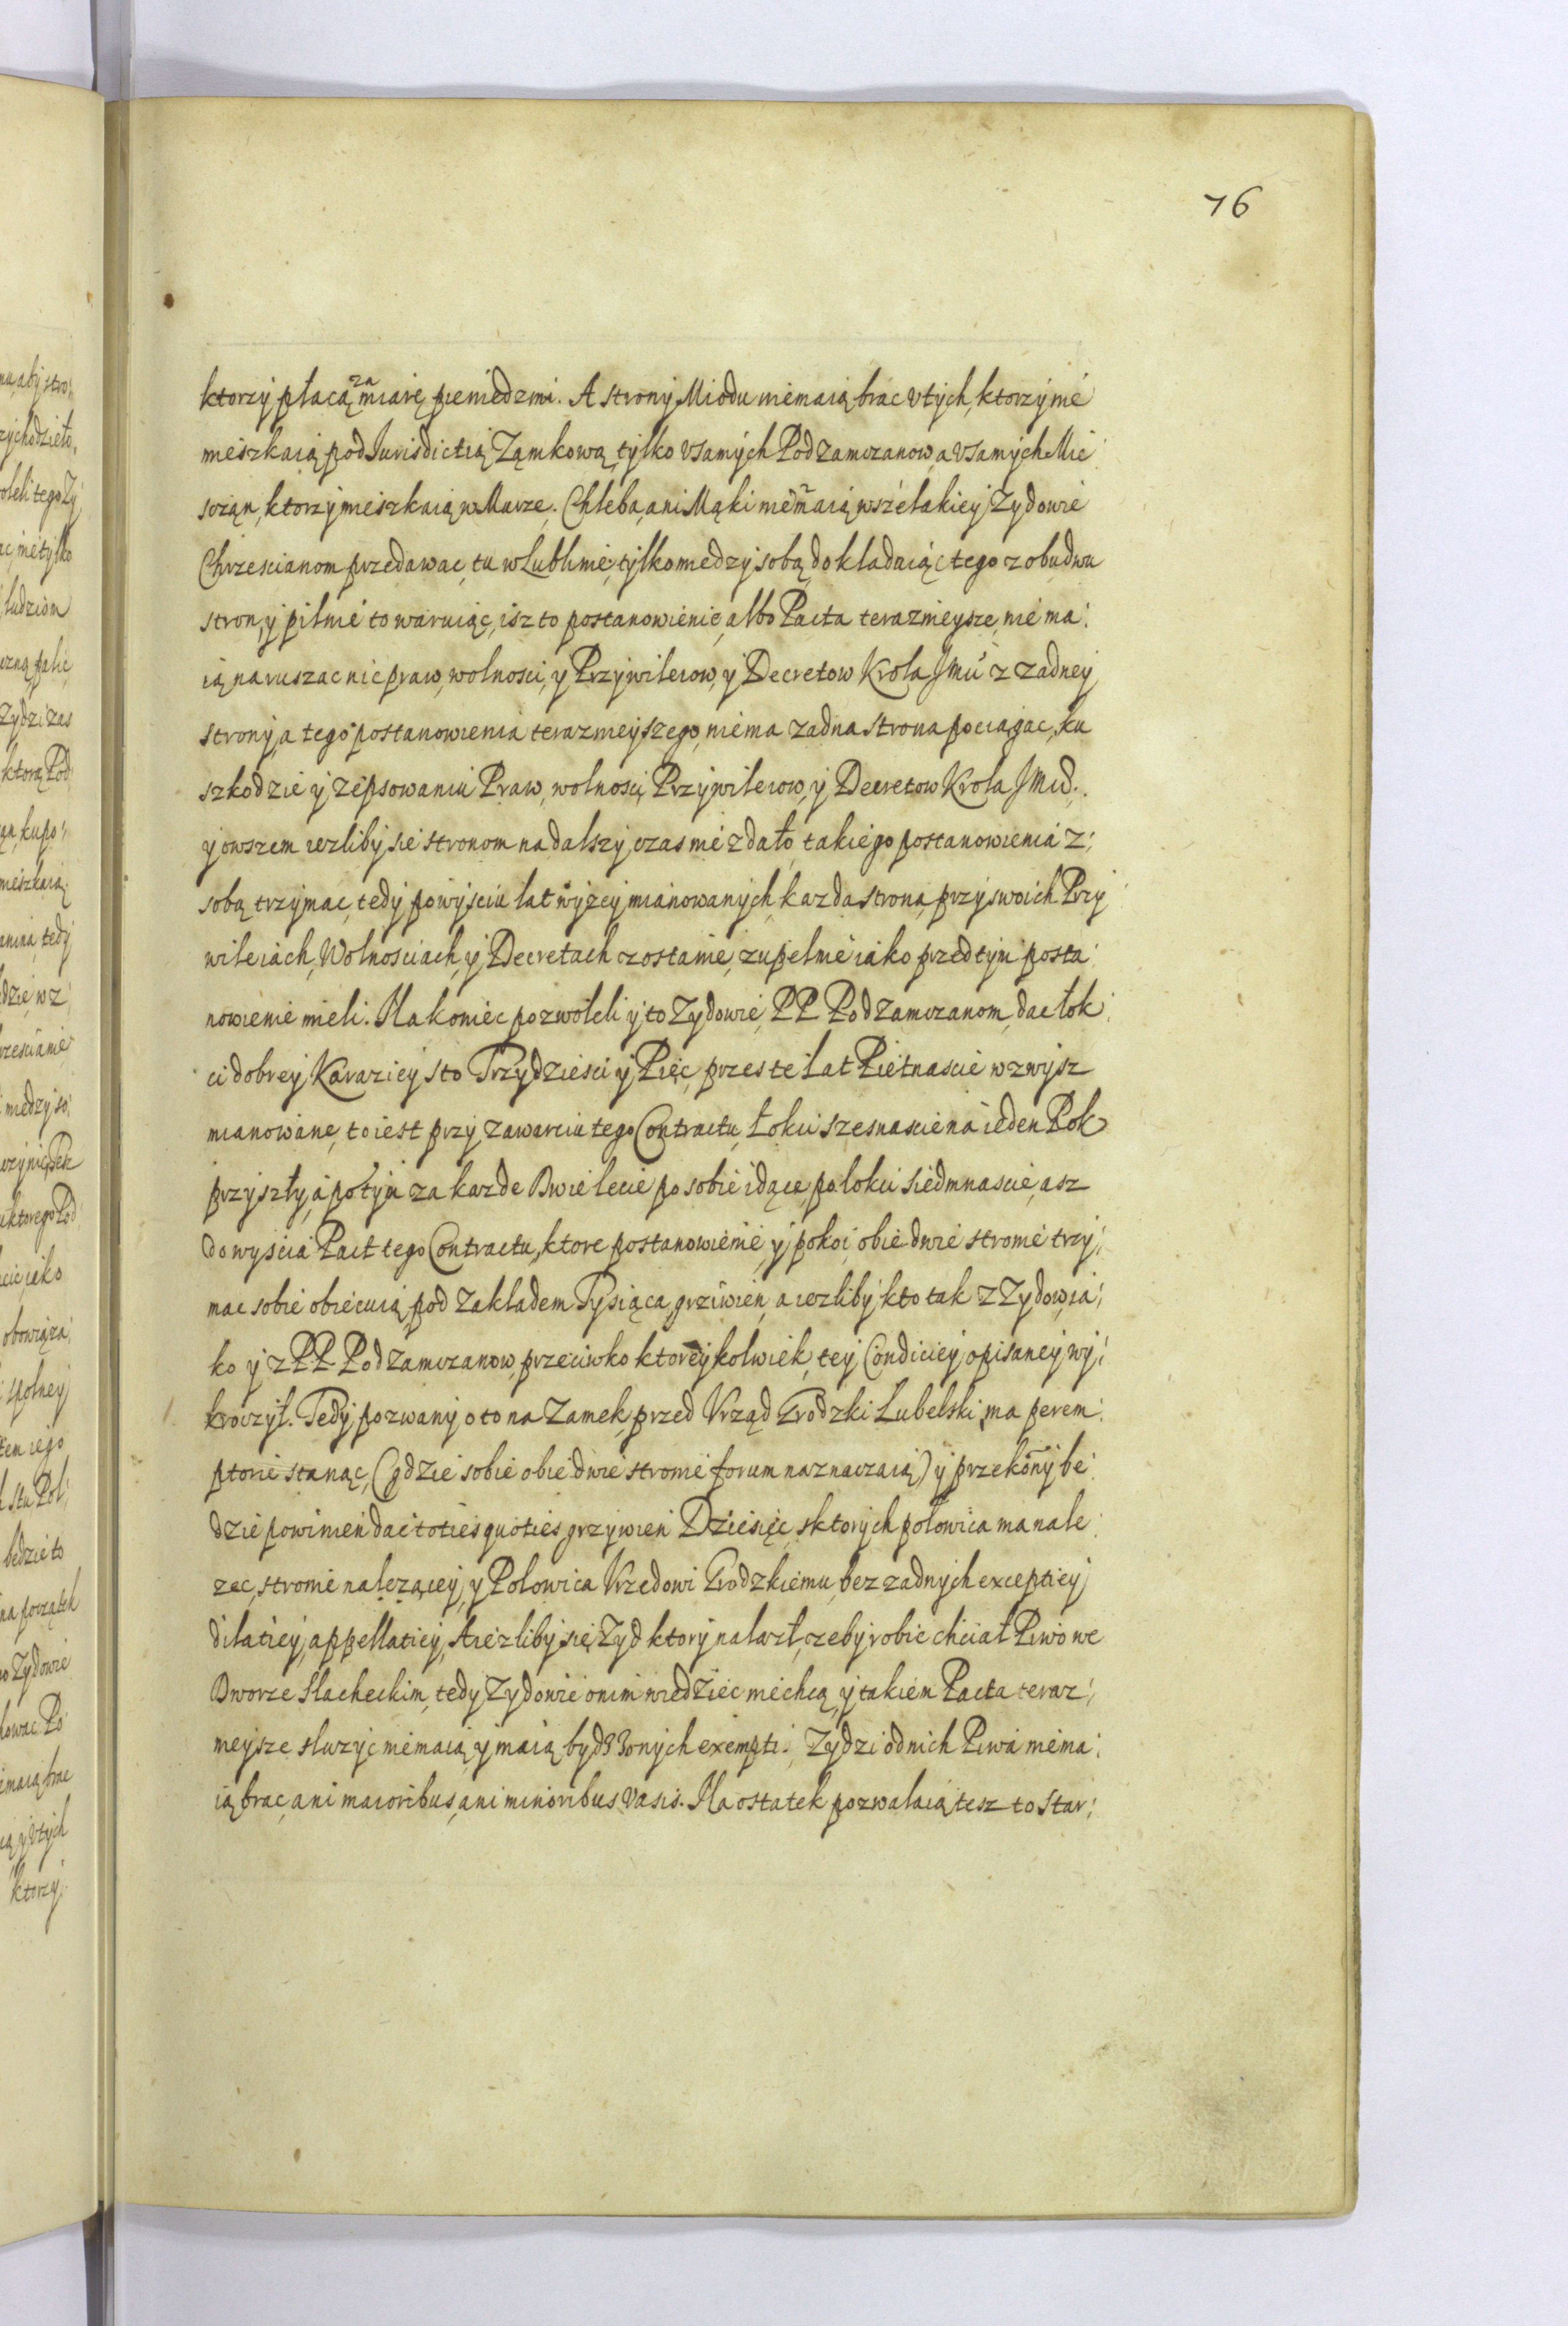 76
ktorzy płacą za miarę pieniedzmi. A strony Miodu niemaią brac v tych, ktorzy nie
mieszkaią pod Iurisdictią Zamkową, tylko v samych Podzamczanow, a v samych Mie:
sczan, ktorzy mieszkaią w Murze. Chleba, ani Mąki niemaią wszelakiey Zydowie
Chrzescianom przedawac, tu w Lublinie, tylko miedzy sobą, dokladaiąc tego z obudwu
stron, y pilnie to waruiąc, isz to postanowienie, albo Pacta teraznieysze, nie ma:
ią naruszac nic praw, wolnosci, y Przywileiow, y Decretow Krola JMci z zadney
strony, a tego postanowienia teraznieyszego, niema zadna strona pociągac, ku
szkodzie y zepsowaniu Praw, wolnosci Przywileiow, y Decretow Krola JMci.
y owszem iezliby sie stronom na dalszy czas nie zdało, takiego postanowienia z:
sobą trzymac, tedy po wysciu lat wyzey mianowanych, kazda strona, przy swoich Przy:
wileiach, Wolnosciach, y Decretach zostanie, zupełnie iako przedtym posta:
nowienie mieli. Na koniec pozwolili y to Zydowie, PP. Podzamczanom, dac łok:
ci dobrey Karaziey sto Trzydziesci y Pięc, przes te Lat Pietnascie wzwysz
mianowane, to iest przy zawarciu tego Contractu, Łokci szesnascie na ieden Rok
przyszły, a potym za kazde Dwie lecie po sobie idące, po lokci siedmnascie, asz
do wyscia Pact tego Contractu, ktore postanowienie, y pokoi, obie dwie stronie trzy:
mac sobie obiecuią, pod Zakladem Tysiąca grziwien, a iezliby kto tak z Zydow, ia:
ko y z PP. Podzamczanow, przeciwko ktoreykolwiek, tey Condiciey opisaney wy:
kroczył. Tedy pozwany o to na Zamek, przed Vrząd Grodzki Lubelski, ma perem:
ptorie stanąc, (gdzie sobie obie dwie stronie forum naznaczaią) y przekony be:
dzie powinien dac toties quoties grzywien Dziesięc, s ktorych połowica ma nale:
zec, stronie nalezącey, y Polowica Vrzedowi Grodzkiemu, bez zadnych exceptiey
dilatiey, appellatiey, A iezliby się Zyd ktory nalazł, czeby robic chciał Piwo we
Dworze Slacheckim, tedy Zydowie o nim wiedziec niechcą, y takiem Pacta teraz:
nieysze sluzyc niemaią, y maią bydz z onych exempti. Zydzi od nich Piwa niema:
ią brac, ani maioribus, ani minoribus vasis. Na ostatek pozwalaią tesz to star: